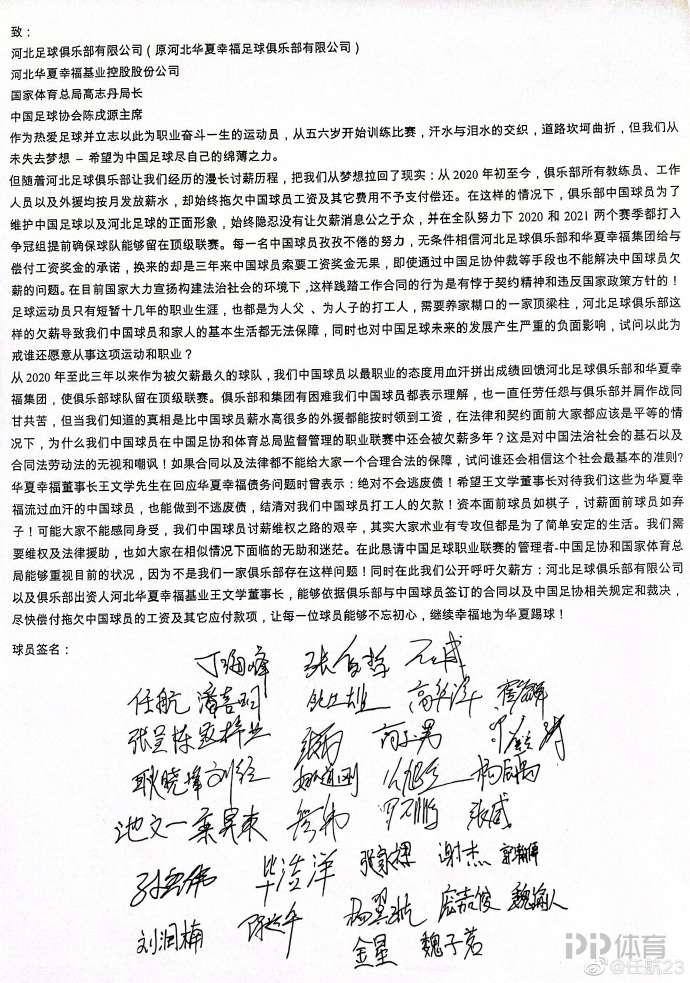 致：
河北足球俱乐部有限公司（原河北华夏幸福足球俱乐部有限公司）
河北华夏幸福基业控股股份公司
国家体育总局高志丹局长
中国足球协会陈戌源主席
作为热爱足球并立志以此为职业奋斗一生的运动员，从五六岁开始训练比赛，汗水与泪水的交织，道路坎坷曲折，但我们从
未失去梦想 – 希望为中国足球尽自己的绵薄之力。
但随着河北足球俱乐部让我们经历的漫长讨薪历程，把我们从梦想拉回了现实：从 2020 年初至今，俱乐部所有教练员、工作
人员以及外援均按月发放薪水，却始终拖欠中国球员工资及其它费用不予支付偿还。在这样的情况下，俱乐部中国球员为了
维护中国足球以及河北足球的正面形象，始终隐忍没有让欠薪消息公之于众，并在全队努力下 2020 和 2021 两个赛季都打入
争冠组提前确保球队能够留在顶级联赛。每一名中国球员孜孜不倦的努力，无条件相信河北足球俱乐部和华夏幸福集团给与
偿付工资奖金的承诺，换来的却是三年来中国球员索要工资奖金无果，即使通过中国足协仲裁等手段也不能解决中国球员欠
薪的问题。在目前国家大力宣扬构建法治社会的环境下，这样践踏工作合同的行为是有悖于契约精神和违反国家政策方针的！
足球运动员只有短暂十几年的职业生涯，也都是为人父 、为人子的打工人，需要养家糊口的一家顶梁柱，河北足球俱乐部这
样的欠薪导致我们中国球员和家人的基本生活都无法保障，同时也对中国足球未来的发展产生严重的负面影响，试问以此为
戒谁还愿意从事这项运动和职业？
从 2020 年至此三年以来作为被欠薪最久的球队，我们中国球员以最职业的态度用血汗拼出成绩回馈河北足球俱乐部和华夏幸
福集团，使俱乐部球队留在顶级联赛。俱乐部和集团有困难我们中国球员都表示理解，也一直任劳任怨与俱乐部并肩作战同
甘共苦，但当我们知道的真相是比中国球员薪水高很多的外援都能按时领到工资，在法律和契约面前大家都应该是平等的情
况下，为什么我们中国球员在中国足协和体育总局监督管理的职业联赛中还会被欠薪多年？这是对中国法治社会的基石以及
合同法劳动法的无视和嘲讽！如果合同以及法律都不能给大家一个合理合法的保障，试问谁还会相信这个社会最基本的准则?
华夏幸福董事长王文学先生在回应华夏幸福债务问题时曾表示：绝对不会逃废债！希望王文学董事长对待我们这些为华夏幸
福流过血汗的中国球员，也能做到不逃废债，结清对我们中国球员打工人的欠款！资本面前球员如棋子，讨薪面前球员如弃
子！可能大家不能感同身受，我们中国球员讨薪维权之路的艰辛，其实大家术业有专攻但都是为了简单安定的生活。我们需
要维权及法律援助，也如大家在相似情况下面临的无助和迷茫。在此恳请中国足球职业联赛的管理者-中国足协和国家体育总
局能够重视目前的状况，因为不是我们一家俱乐部存在这样问题！同时在此我们公开呼吁欠薪方：河北足球俱乐部有限公司
以及俱乐部出资人河北华夏幸福基业王文学董事长，能够依据俱乐部与中国球员签订的合同以及中国足协相关规定和裁决，
尽快偿付拖欠中国球员的工资及其它应付款项，让每一位球员能够不忘初心，继续幸福地为华夏踢球！
球员签名：
丁海峰
任航 潘喜明 高华泽
张呈栋
耿晓峰 刘经
池文一 罗鹏 张威
毕津洋 张家祺 谢杰
刘润楠 庞嘉俊 魏瑜人
金星 魏子茗
PP体育
@任航23